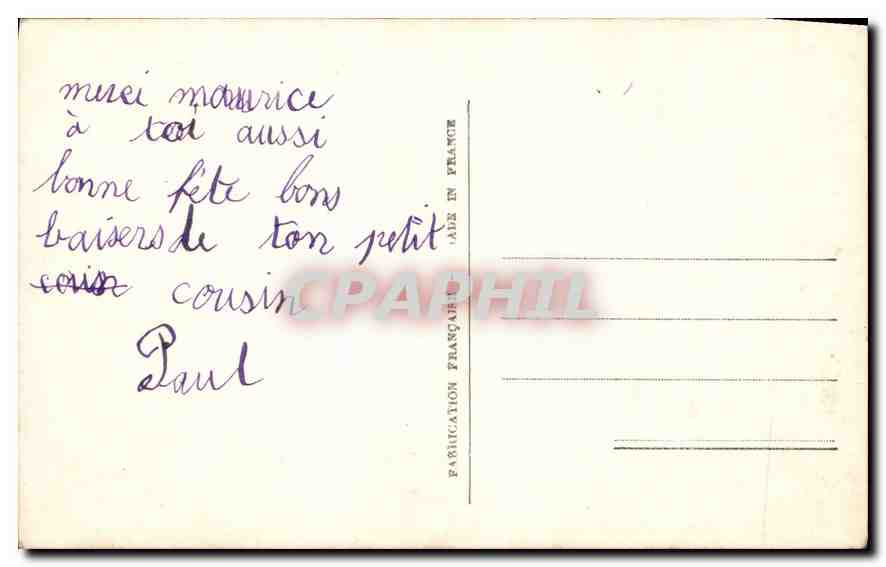 merci maurice
à toi aussi
bonne fête bons
baisers de ton petit
cousin
Paul
FABRICATION FRANÇAISE MADE IN FRANCE
CPAPHIL